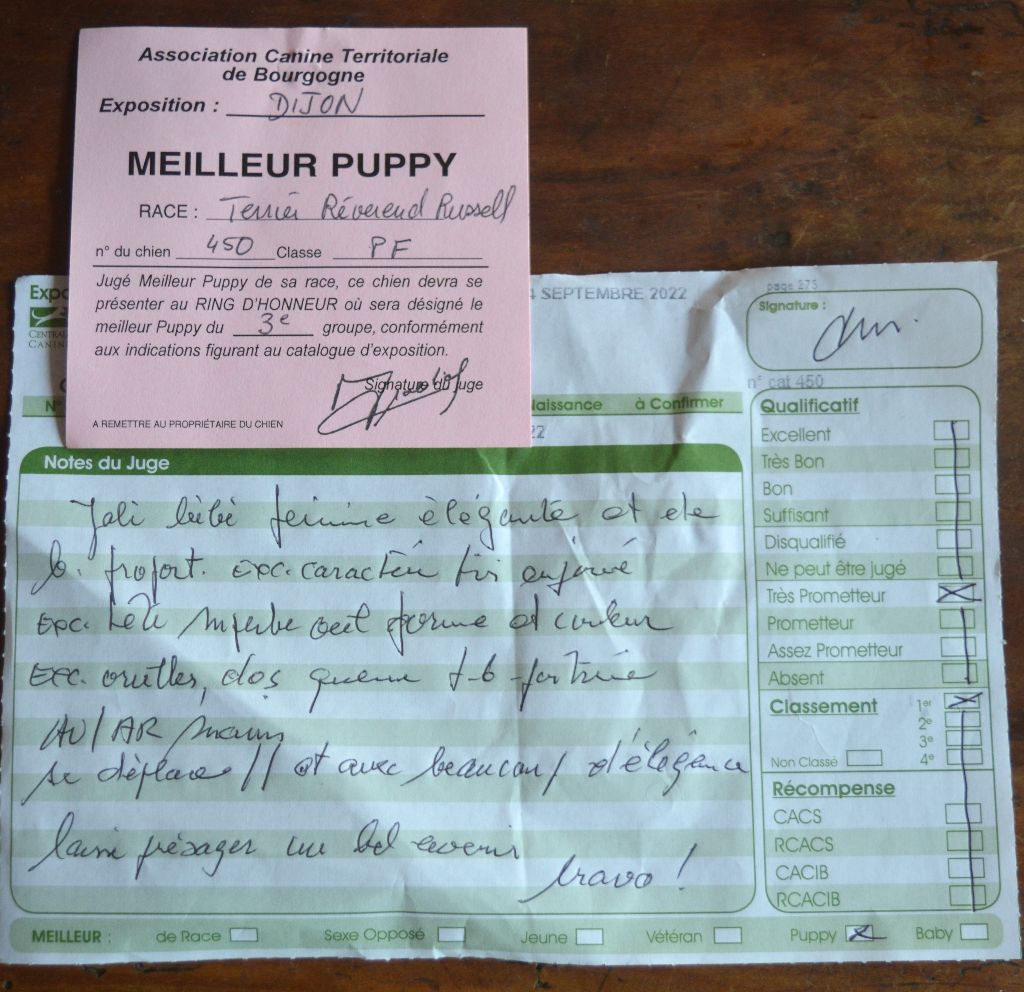 Association Canine Territoriale
de Bourgogne
Exposition : DIJON
MEILLEUR PUPPY
RACE : Terrier Révérend Russell
n° du chien 450 Classe PF
Jugé Meilleur Puppy de sa race, ce chien devra se
présenter au RING D'HONNEUR où sera désigné le
meilleur Puppy du 3e groupe, conformément
aux indications figurant au catalogue d'exposition.
Signature du juge
A REMETTRE AU PROPRIÉTAIRE DU CHIEN
Expo
CENTRAL
CANIN
4 SEPTEMBRE 2022
page 273
Signature :
n° cat 450
N°
Naissance à Confirmer
22
Notes du Juge
Joli bébé femme élégante et de
b. proport. exc. caractère très enjoué
exc. tête superbe oeil forme et couleur
exc. oreilles, dos queue t-b-
AV/AR
se déplace // et avec beaucoup d'élégance
laisse présager un bel avenir
bravo !
Qualificatif
Excellent
Très Bon
Bon
Suffisant
Disqualifié
Ne peut être jugé
Très Prometteur
Prometteur
Assez Prometteur
Absent
Classement 1er
2e
3e
Non Classé 4e
Récompense
CACS
RCACS
CACIB
RCACIB
MEILLEUR : de Race Sexe Opposé Jeune Vétéran Puppy Baby